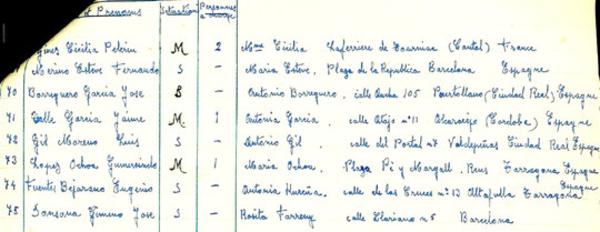 et Prenoms Situation Personnes à charge
Gines Cicilia Pelerin M 2 Mme Cicilia Laferriere de (Cantal) France
Merino Esteve Fernando S - Maria Esteve. Plaza de la Republica Barcelona Espagne
70 Borreguero Garcia Jose S - Antonio Borreguero. calle Ancha 105 Puertollano (Ciudad Real) Espagne
71 Valle Garcia Jaime M. 1 Antonia Garcia. calle nº 11 Alcaracejo (Cordoba) Espagne
72 Gil Moreno Luis S - Antonio Gil. calle del Portal nº7 Valdepeñas Ciudad Real Espagne
73 Lopez Ochoa Gumersindo M 1 Maria Ochoa. Plaza Pi y Margall. Reus Tarragona Espagne
74 Fuentes Bejarano Eugenio S - Antonia calle de las Cruces nº 13 Altafulla Tarragona Espagne
75 Sansana Jimeno Jose S - Rosita Farreny calle Llariano nº5 Barcelona